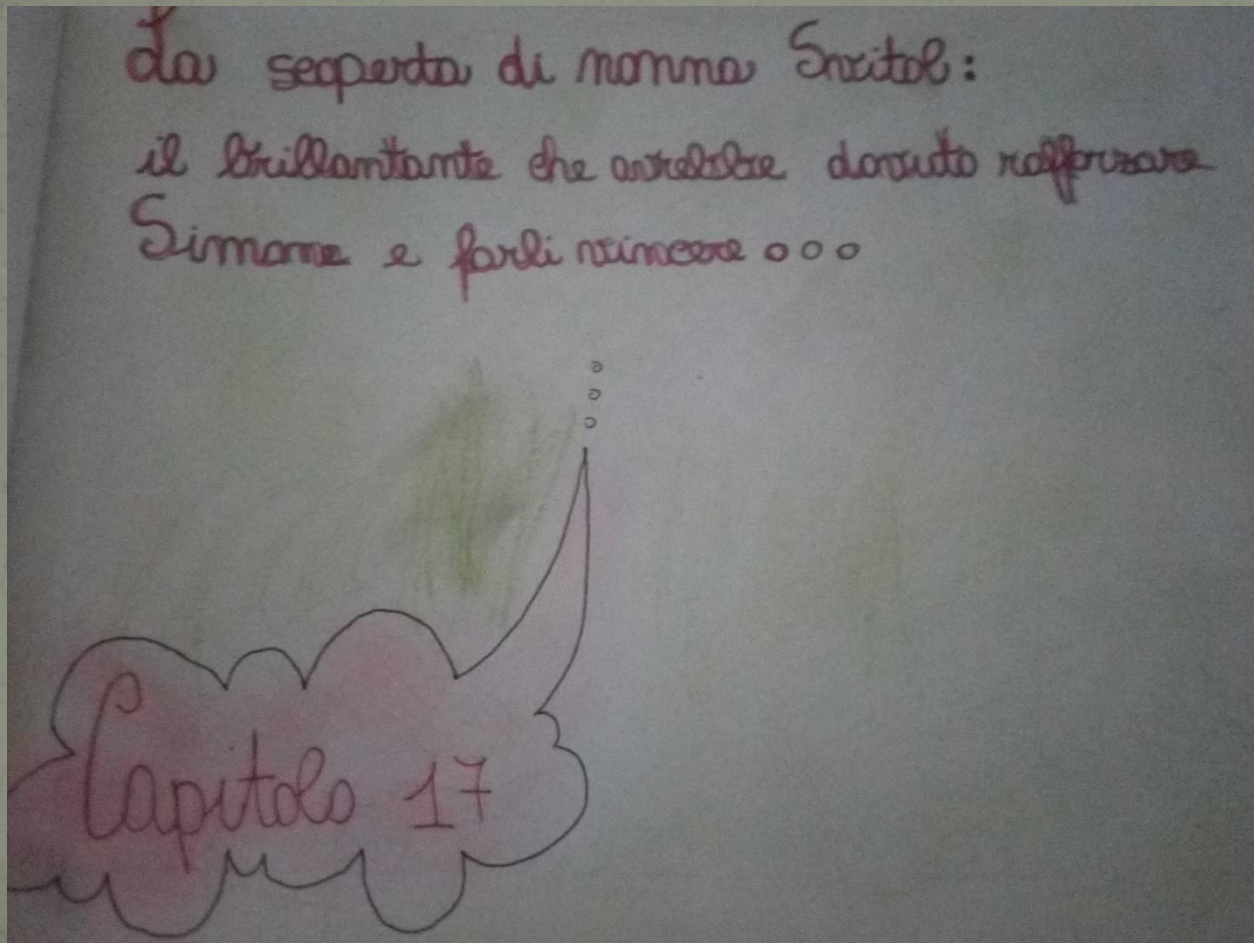 La scoperta di nonna Sncitol:
il brillantante che avrebbe dovuto rafforzare
Simone e farli vincere ooo
Capitolo 17